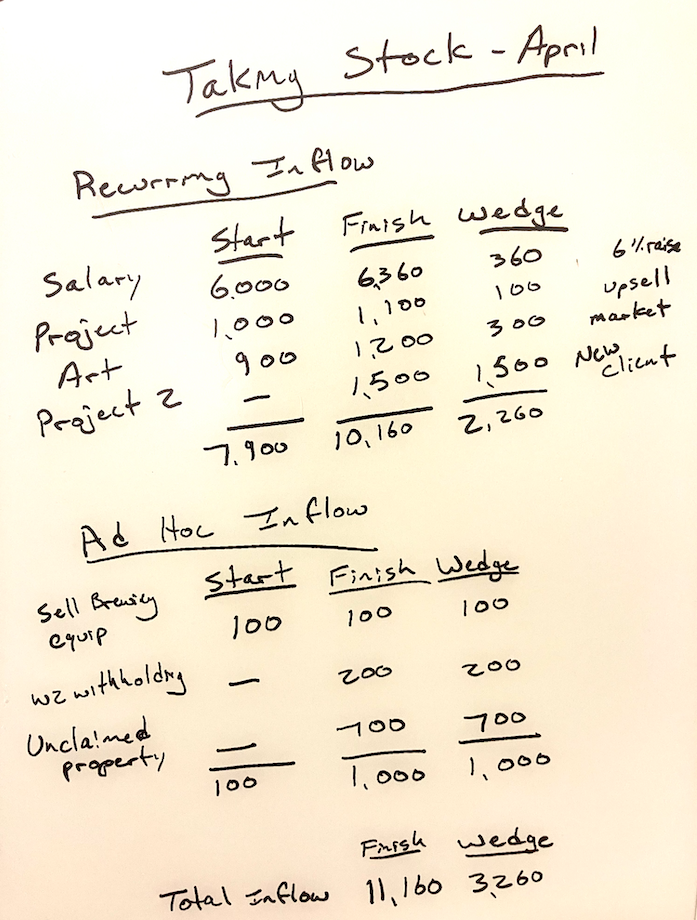 Taking Stock - April
Recurring Inflow
Start Finish Wedge
Salary 6,000 6,360 360 6% raise
Project 1,000 1,100 100 upsell
Art 900 1,200 300 market
Project 2 — 1,500 1,500 New client
7,900 10,160 2,260
Ad Hoc Inflow
Start Finish Wedge
Sell Brewing
equip 100 100 100
W2 withholding — 200 200
Unclaimed
property — 700 700
100 1,000 1,000
Finish Wedge
Total Inflow 11,160 3,260